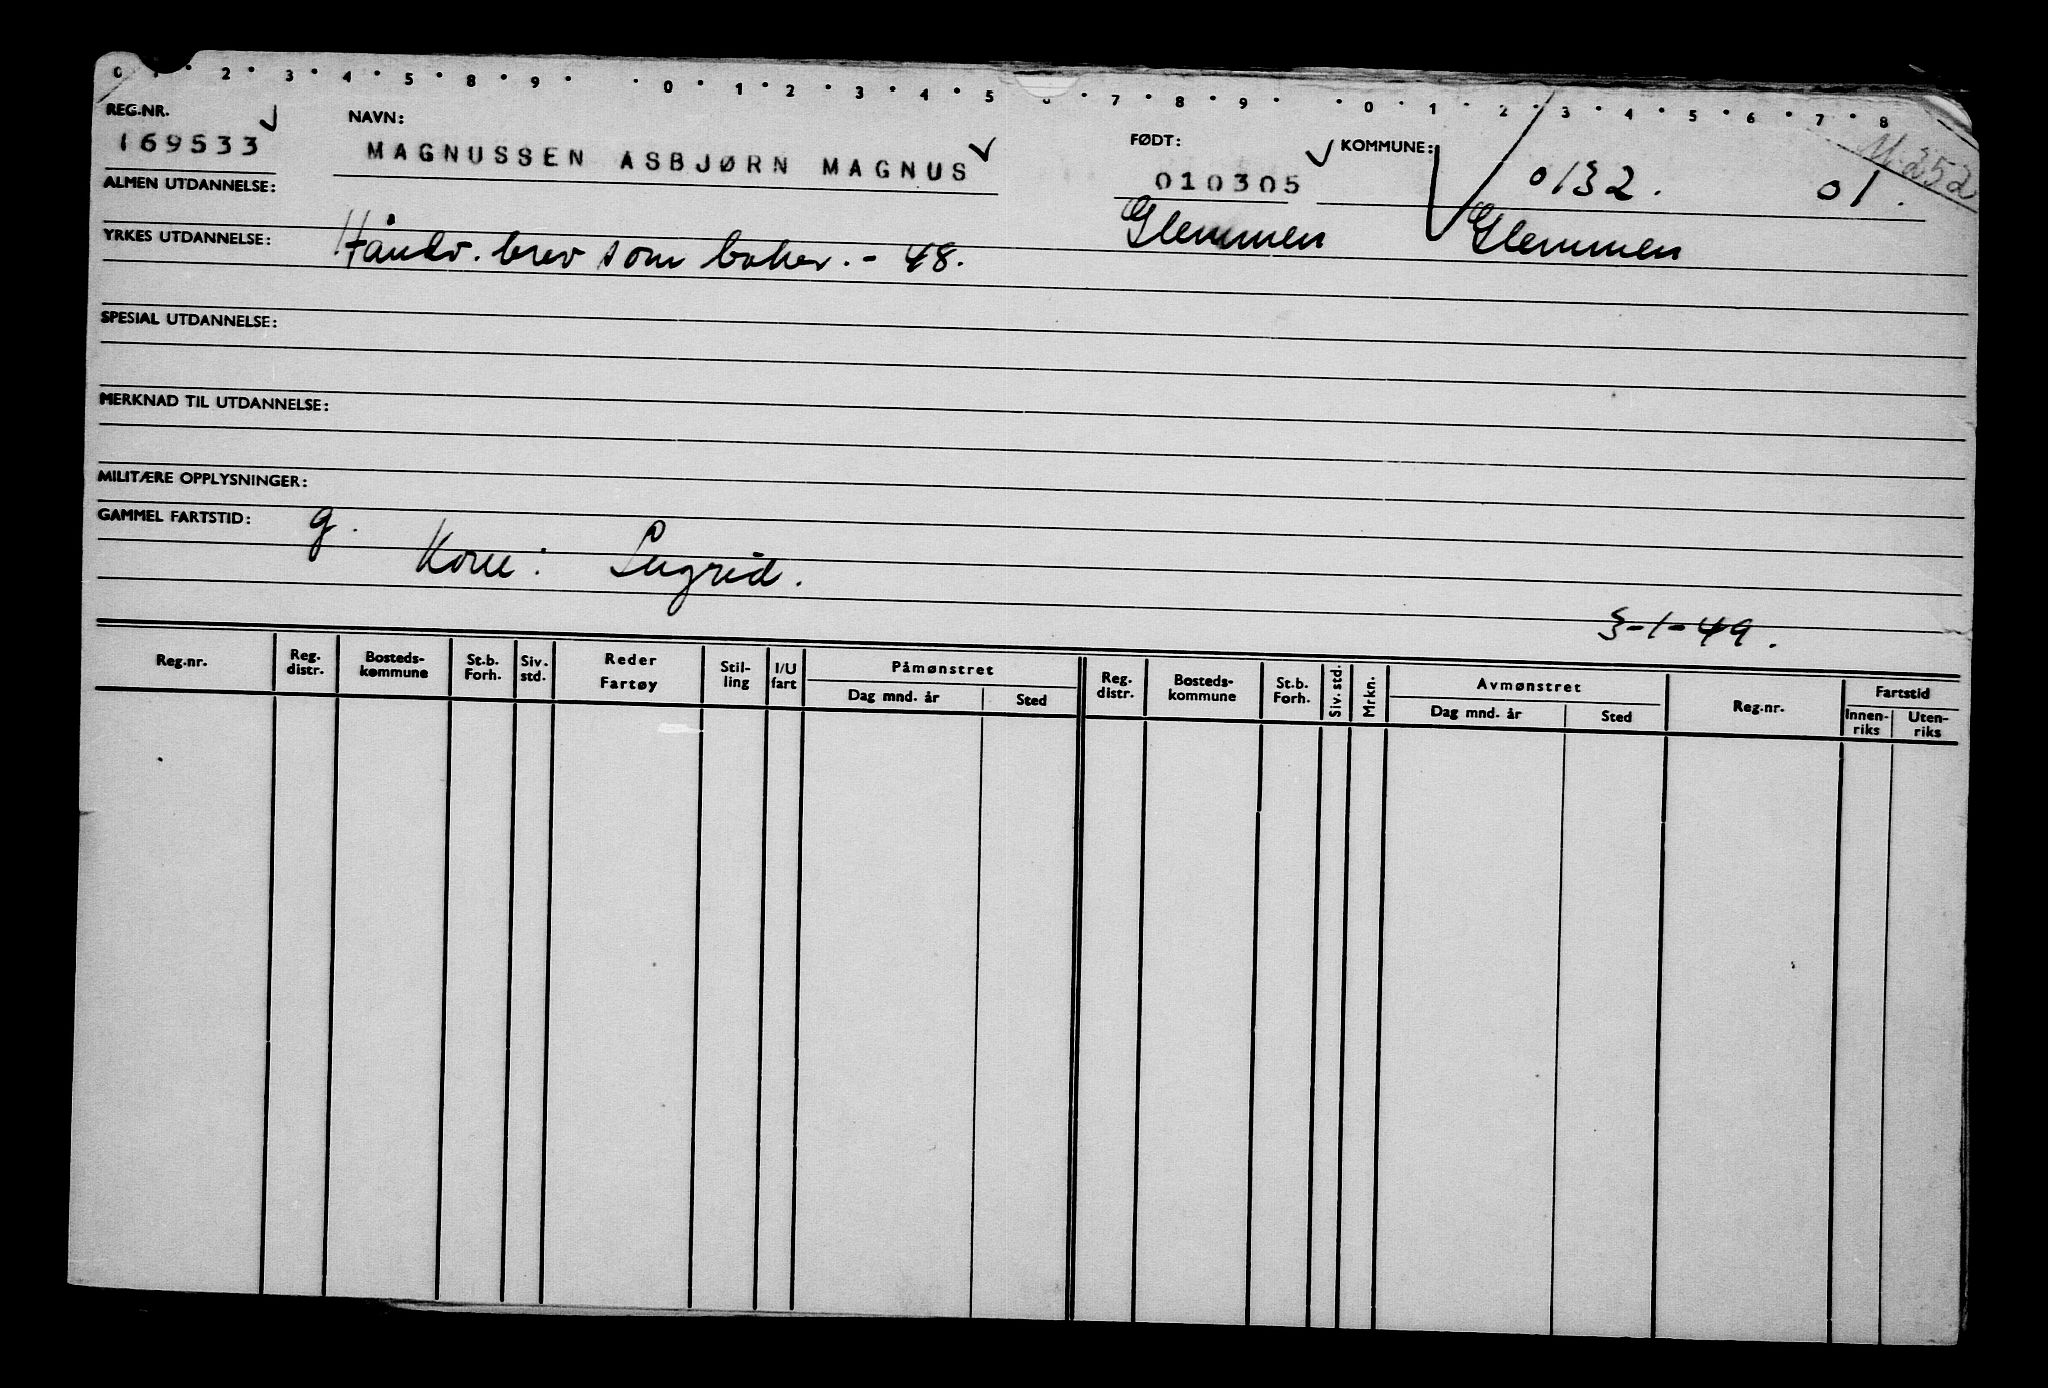 0 2 3 4 5 8 9 0 1 2 3 4 5 7 8 9 0 1 2 3 4 5 6 7 8
REG.NR. NAVN: FØDT: KOMMUNE: M.252
169533 MAGNUSSEN ASBJØRN MAGNUS 010305 0132. 01.
ALMEN UTDANNELSE: Glemmen Glemmen
YRKES UTDANNELSE: Håndv. brev som baker. - 48.
SPESIAL UTDANNELSE:
MERKNAD TIL UTDANNELSE:
MILITÆRE OPPLYSNINGER:
GAMMEL FARTSTID: g.
Kone: Ingrid.
3-1-49.
Reg.nr. Reg. distr. Bosteds-kommune St.b. Forh. Siv. std. Reder Fartøy Stil-ling I/U fart Påmønstret Reg. distr. Bosteds-kommune St.b. Forh. Siv. std. Mrkn. Avmønstret Reg.nr. Fartstid
Dag mnd. år Sted Dag mnd. år Sted Innen-riks Uten-riks